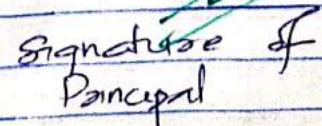 Signature of
Principal